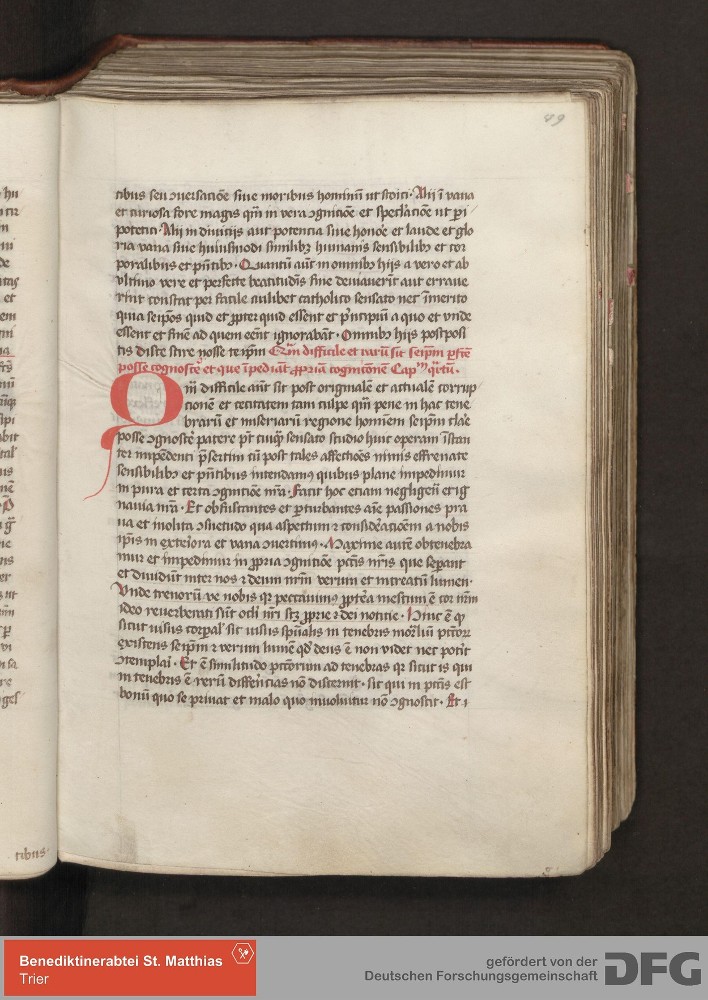 49
tibus seu ↄuersacõe siue moribus hominũ ut stoici · Alij ĩ vana
et curiosa fore magis qm̃ in vera ↄgnicõe et speclacõe ut peri
potenci · Alij in diuicijs aut potencia siue honoẽ et laude et glo
ria vana siue huiusmodi similibꝫ humanis sensibilibꝫ et cor
poralibus et pñtibꝫ · Quantũ aũt in omnibꝫ hijs a vero et ab
vltimo vere et perfecte beatitudĩs fine deuiauerĩt aut erraue
rĩnt constat per facile cuilibet catholico sensato nec ĩmerito
quia seip̃os quid et ꝓpter quid essent et pⁱncipiũ a quo et vnde
essent et finẽ ad quem eẽnt ignorabãt · Omnibꝫ hijs postposi
tis disce scire nosse teip̃m Qm̃ difficile et rarũ sit seip̃m ꝑfc̃e
posse cognoscẽ et que ĩpediãt ꝓpriã cognicionẽ Capᵐ q̃rtũ ·
Qm̃ difficile aũt sit post originalẽ et actualẽ corrup
cionẽ et cecitatem tam culpe qm̃ pene in hac tene
brarũ et miseriarũ regione hominem seip̃m clãe
posse ↄgnoscẽ patere pt̃ cuiqꝫ sensato studio huic operam ĩstan
ter impẽdenti p̃sertim cũ post tales affectiões nimis effrenate
sensibilibꝫ et pñtibus intendamꝰ quibus plane impedimur
in pura et certa ↄgnicõe nr̃a · Facit hoc etiam negligen et ig
nauia nr̃a · Et obfuscantes et ꝑturbantes aĩe passiones pra
ua et inolita ↄsuetudo qua aspectum ⁊ consideracõem a nobis
ip̃is in exteriora et vana ↄuertimꝰ · Maxime autẽ obtenebra
mur et impedimur in ꝓpria ↄgnicõe pctĩs nr̃is que seꝑant
et diuidũt inter nos ⁊ deum nr̃m verum et increatũ lumen ·
Vnde trenorũ ve nobis qꝛ peccauimꝰ ꝓpt̃ea mestum ẽ cor nr̃m
ideo reuerberati sũt oc̃li nr̃i scꝫ ꝓprie ⁊ dei noticie · Hinc ẽ qꝫ
sicut visus corꝑal' sic visus sp̃ualis in tenebris mor̃liũ pctõꝝ
existens seip̃m ⁊ verum lumẽ qd̃ deus ẽ non videt nec potⁱt
ↄtemplai · Et ẽ similitudo pctõrum ad tenebras qꝛ sicut is qui
in tenebris ẽ rerũ differẽcias nõ discernit · sic qui in pctĩs est
bonũ quo se priuat et malo quo inuoluitur nõ ↄgnoscit · Et i
tibus
Benediktinerabtei St. Matthias
Trier
gefördert von der
Deutschen Forschungsgemeinschaft
DFG